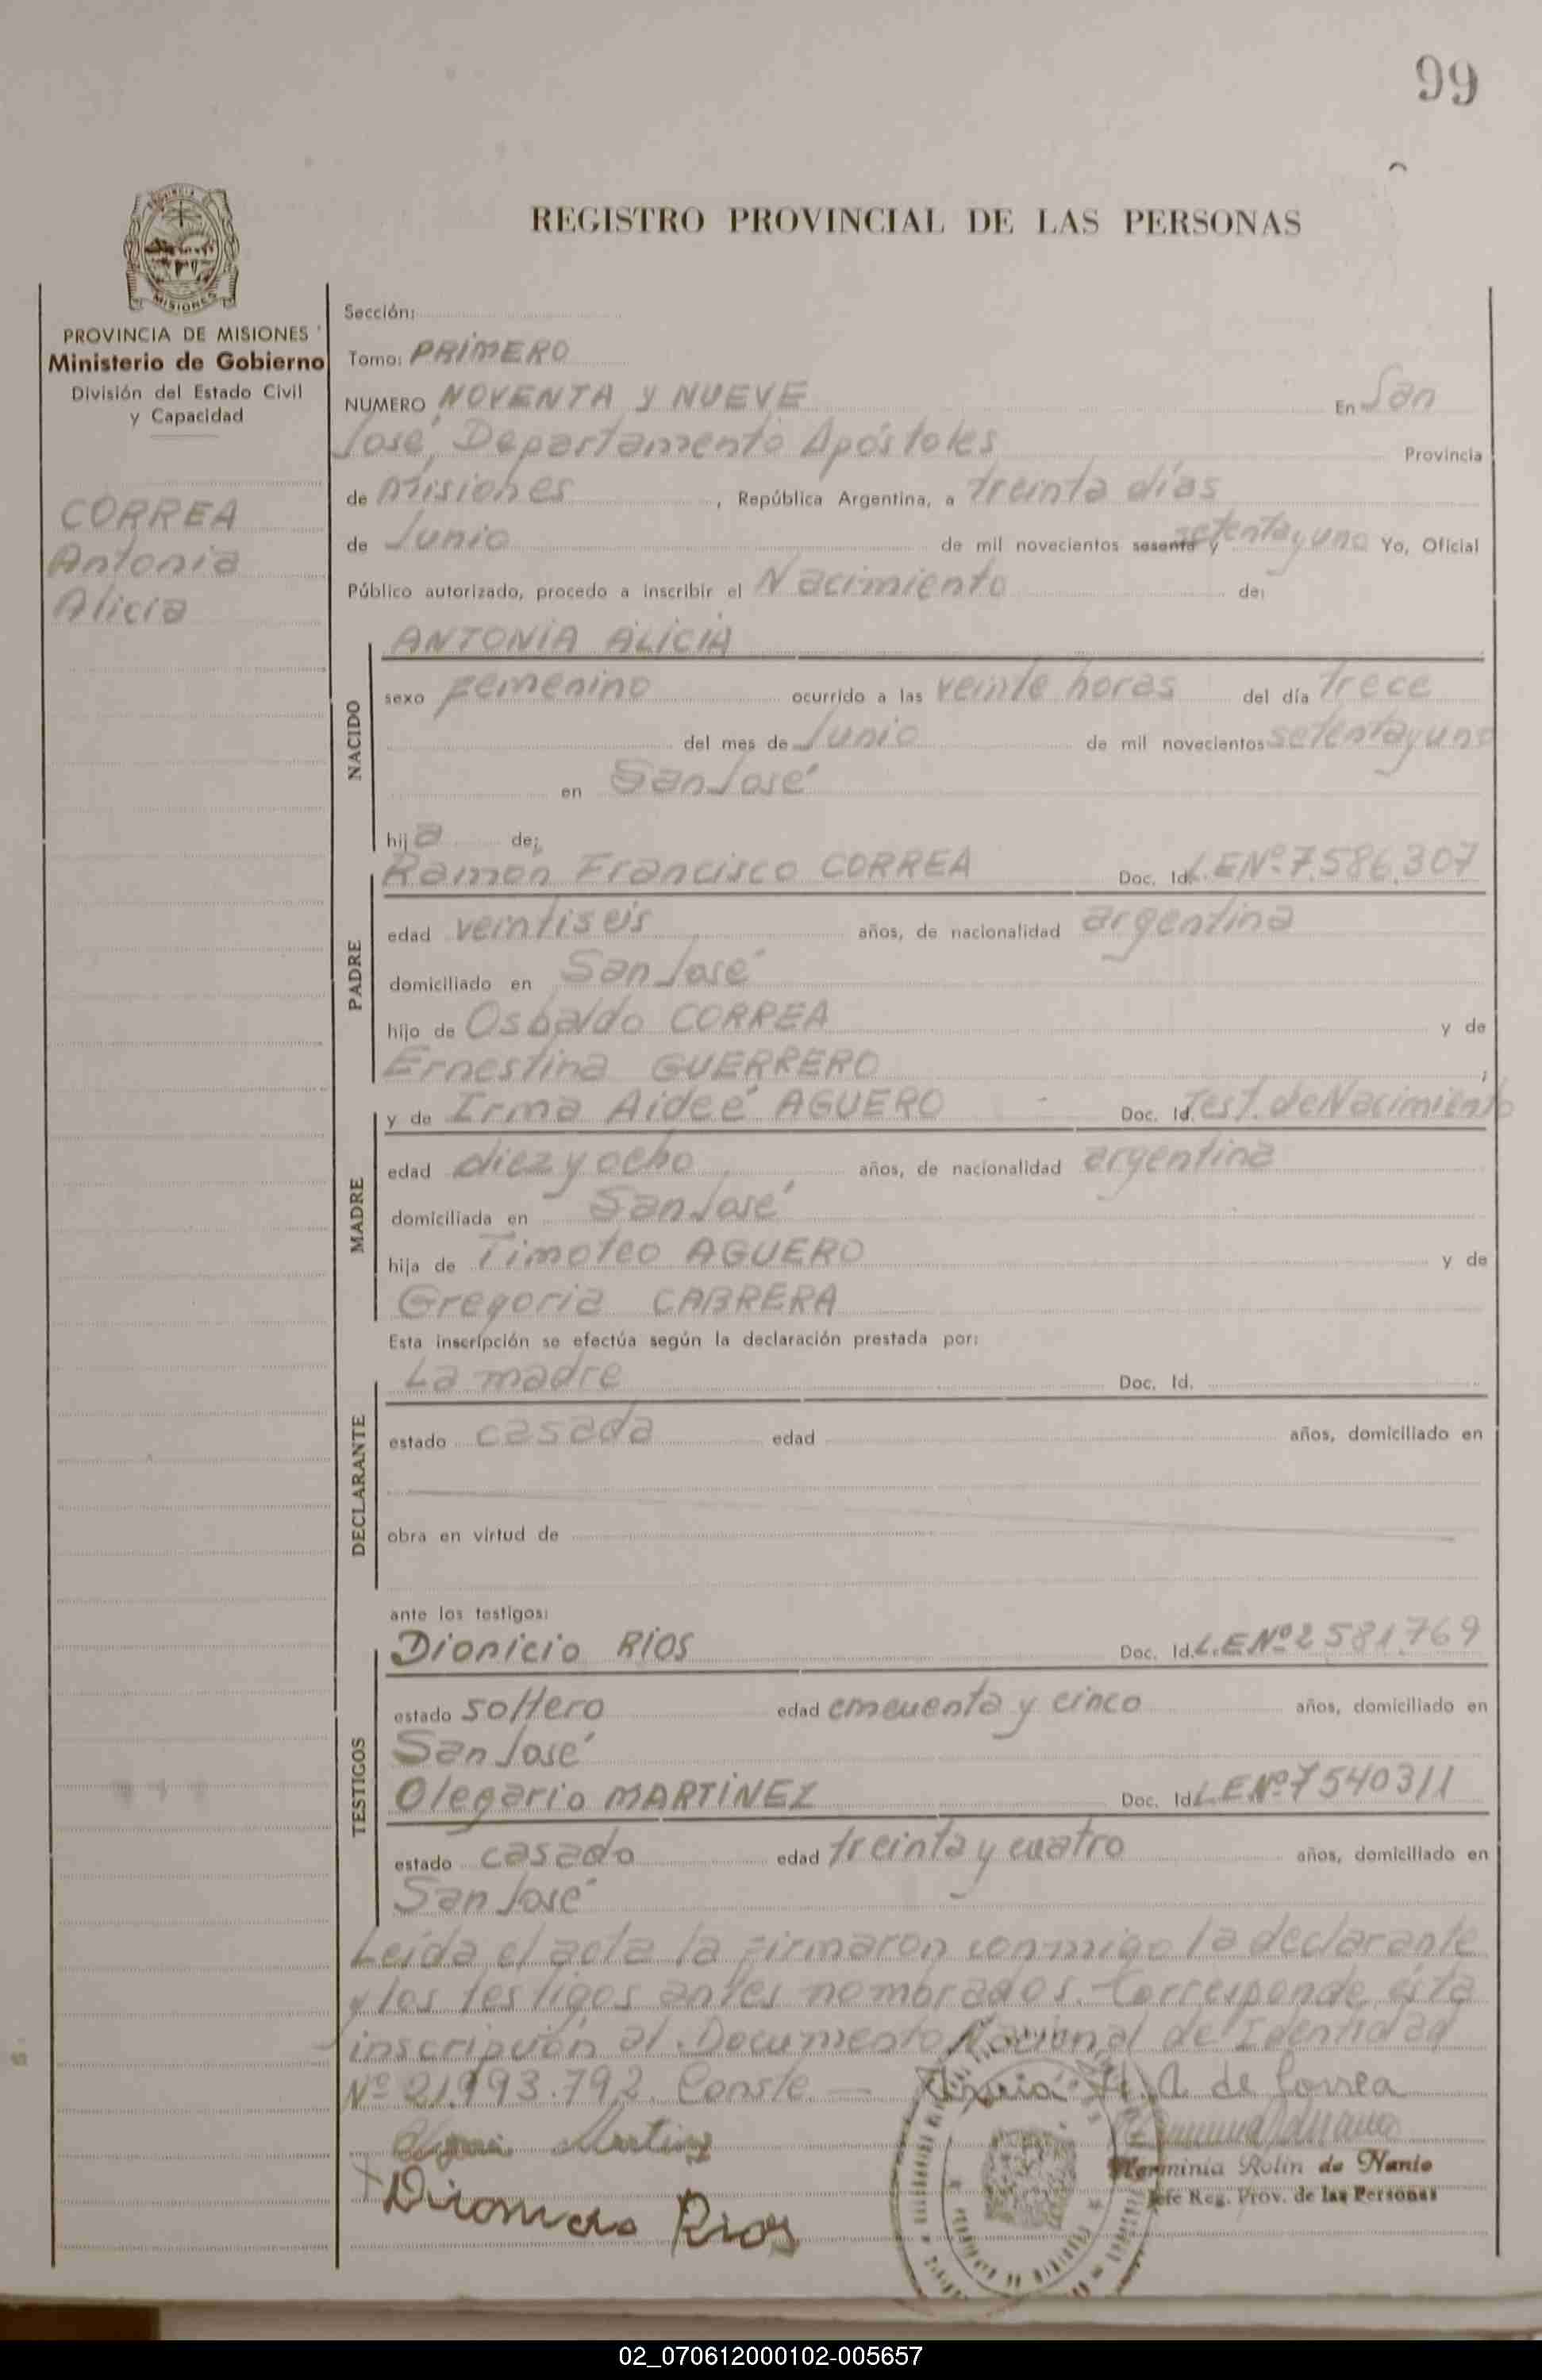 99
REGISTRO PROVINCIAL DE LAS PERSONAS
MISIONES
PROVINCIA DE MISIONES
Ministerio de Gobierno
División del Estado Civil
y Capacidad
CORREA
Antonia
Alicia
Sección:
Tomo: PRIMERO
NUMERO NOVENTA y NUEVE En San
José, Departamento Apóstoles Provincia
de Misiones, República Argentina, a treinta días
de Junio de mil novecientos sesenta y setenta y uno Yo, Oficial
Público autorizado, procedo a inscribir el Nacimiento de:
NACIDO
ANTONIA ALICIA
sexo femenino ocurrido a las veinte horas del día trece
del mes de Junio de mil novecientos setenta y uno
en San José
hija de:
PADRE
Ramón Francisco CORREA Doc. Id. L.E Nº 7.586.307
edad veintiseis años, de nacionalidad argentina
domiciliado en San José
hijo de Osbaldo CORREA y de
Ernestina GUERRERO ;
MADRE
y de Irma Aideé AGUERO Doc. Id. Test. de Nacimiento
edad diez y ocho años, de nacionalidad argentina
domiciliada en San José
hija de Timoteo AGUERO y de
Gregoria CABRERA
Esta inscripción se efectúa según la declaración prestada por:
DECLARANTE
La madre Doc. Id.
estado casada edad años, domiciliado en
obra en virtud de
ante los testigos:
TESTIGOS
Dionicio RIOS Doc. Id. L.E Nº 2581.769
estado soltero edad cincuenta y cinco años, domiciliado en
San José
Olegario MARTINEZ Doc. Id. L.E Nº 7540311
estado casado edad treinta y cuatro años, domiciliado en
San José
Leída el acta la firmaron conmigo la declarante
y los testigos antes nombrados.- Corresponde ésta
inscripción al Documento Nacional de Identidad
Nº 21.993.792. Conste.—
A de Correa
Martinez
Herminia Rolin de Nanio
Jefe Reg. Prov. de las Personas
Rios
02_070612000102-005657